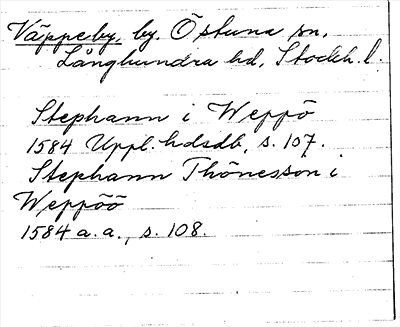 Väppeby, by. Östuna sn,
Långhundra hd, Stockh. l.
Stephann i Weppö
1584 Uppl. hdsdb, s. 107.
Stephann Thönesson i
Weppöö
1584 a. a., s. 108.